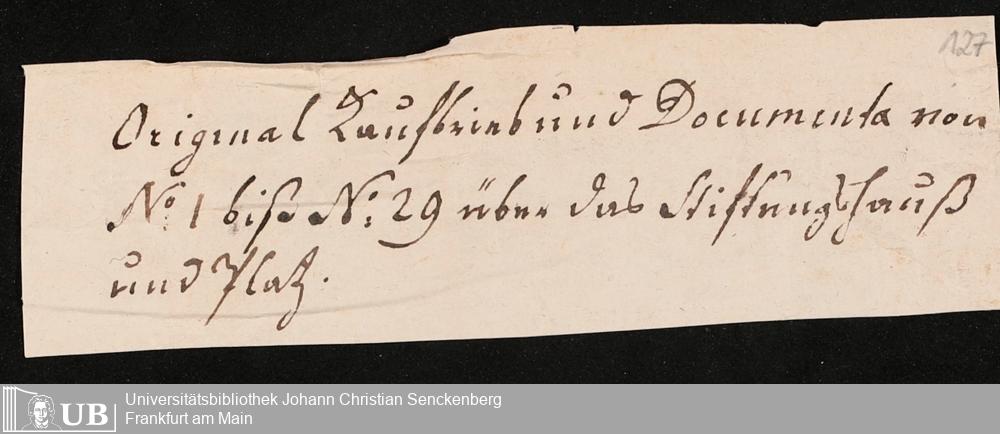 127
Original Kaufbrieb und Documenta von
No: 1 biß No: 29 über das Stiftungshauß
und Platz.
UB
Universitätsbibliothek Johann Christian Senckenberg
Frankfurt am Main